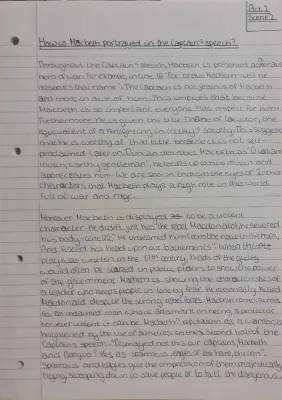 Act 1
Scene 2
How is Macbeth portrayed in the Captain's speech?
Throughout the Captain's speech, Macbeth is presented as a brutal
hero of war. For example, in line 16 "for brave Macbeth - well he
deserves that name". The Captain is not jealous of Macbeth
and more in awe of him. This implies that because
Macbeth is so important everyone has respect for him.
Furthermore, he is given the title Thane of Cawdor, the
equivalent of a knighting in today's society. This suggests
that he is worthy of that title because he is not self-
proclaimed. Later on, Duncan describes Macbeth as "Valiant
cousin, worthy gentleman", he leads up to his cousin and
appreciates him. We are shown through the eyes of 2 other
characters that Macbeth plays a high role in this world
full of war and rage.
Moreover Macbeth is displayed to be a violent
character. He didn't just kill the rebel Macdonald, he severed
his body - line 22, "He unseamed him from the nave to th' chops,
And fixed his head upon our battlements". When this
play was written in the 17th century, heads of the guilty
would often be on public places to show the power
of the government. Macbeth is showing the characteristics of
a leader who keeps people in line by fear. He personally killed
Macdonald despite the strong rebel forces. Macbeth comes across
as a determined man who is adamant on being a protector
to his
by the use of similes in the second half of the
Captain's speech. "Dismayed not this our captains, Macbeth
and Banquo? Yes, as sparrows, eagles, or the hare, the lion".
Sparrows and eagles give the comparison of them majestically
flying swooping down to save people or to kill the dangerous